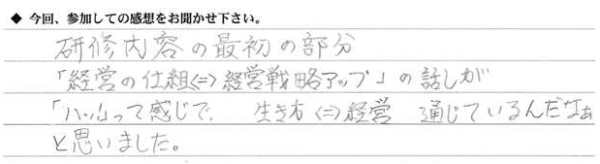 ◆ 今回、参加しての感想をお聞かせ下さい。
研修内容の最初の部分
「経営の仕組⇔経営戦略アップ」の話しが
「ハッ」って感じで、 生き方⇔経営 通じているんだなぁ
と思いました。